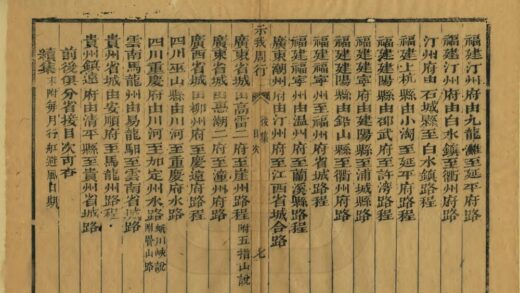 福建汀州府由九龍灘至延平府路
福建汀州府由白水鎮至衢州府路
汀州府由石城縣至白水鎮路程
福建上杭縣由小淘至延平府路
福建建陽縣由邵武府至許灣路
福建建陽縣由鉛山縣至衢州府路
福建建寧府由建陽縣至浦城縣路
福建福寧州至福州府省城路
福建福寧州由溫州府至蘭溪縣路程
廣東潮州府由汀州府至江西省城合路
示我周行 後集目次 七
廣東省城由高雷二府至崖州路程 附五指山說
廣東省城由惠潮二府至漳州府
廣西省城由柳州府至慶遠府路程
四川巫山縣由川河至重慶府水路
四川重慶府由川河至加定州水路 川峽說 附疊山路
雲南馬龍州由易龍驛至雲南省城路
貴州省城由安順府至馬龍州路程
貴州鎮遠府由清平縣至貴州省城路
前後俱分省接目次可查
續集 附每月行船避風日期